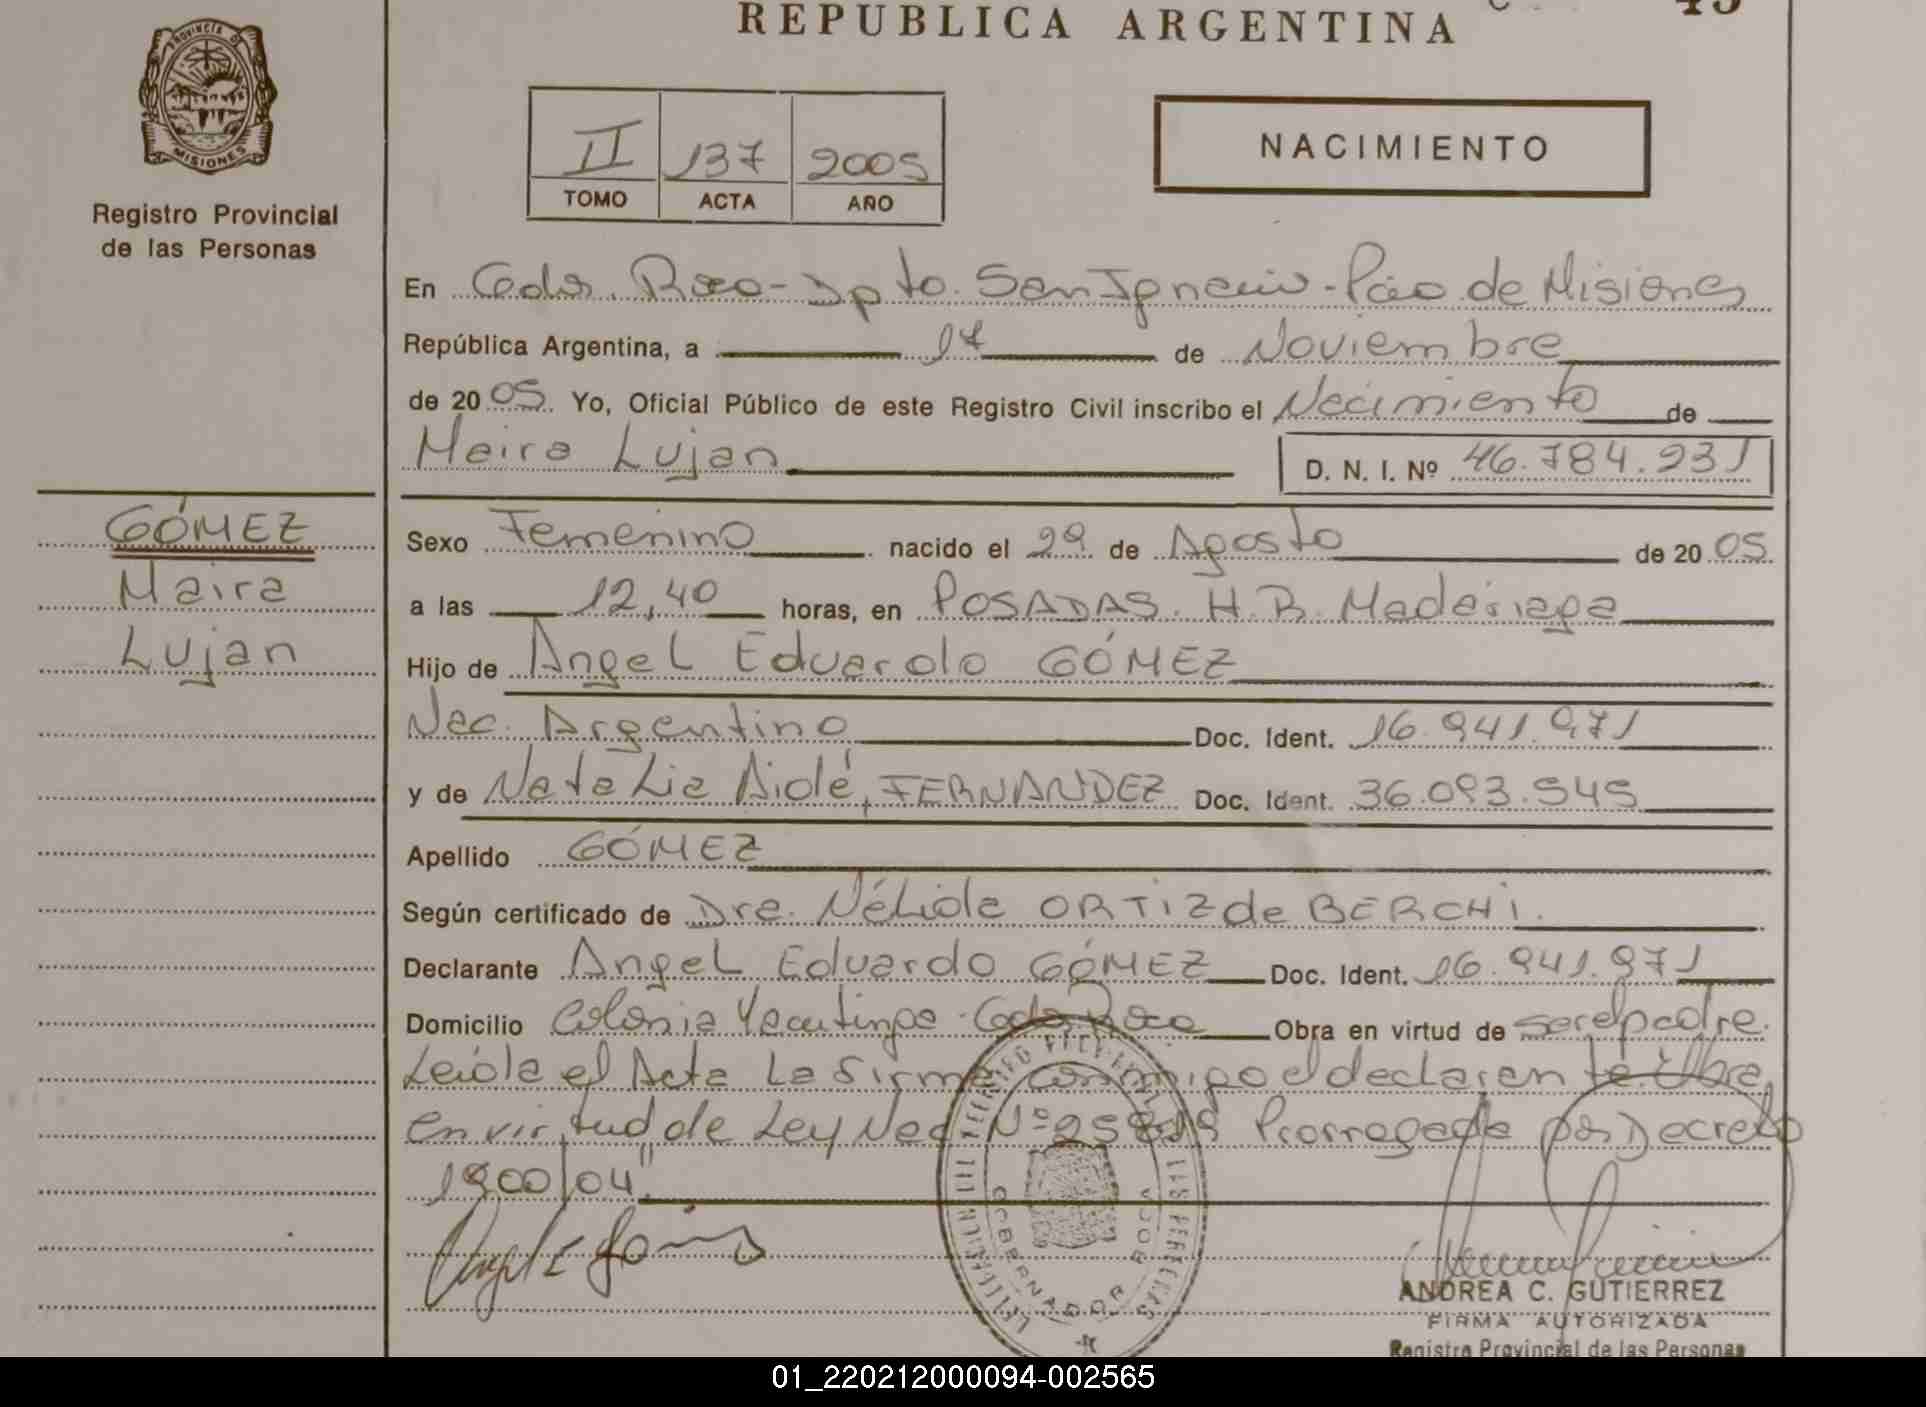 REPUBLICA ARGENTINA
PROVINCIA DE
MISIONES
Registro Provincial
de las Personas
II 137 2005
TOMO ACTA AÑO
NACIMIENTO
En Gdor. Roca - Dpto. San Ignacio - Pcia de Misiones
República Argentina, a 17 de Noviembre
de 2005 Yo, Oficial Público de este Registro Civil inscribo el Nacimiento de
Maira Lujan D. N. I. Nº 46.784.931
GÓMEZ
Maira
Lujan
Sexo Femenino nacido el 29 de Agosto de 2005
a las 12,40 horas, en POSADAS. H.R. Madariaga
Hijo de Angel Eduardo GÓMEZ
Nac. Argentino Doc. Ident. 16.941.971
y de Natalia Aidé, FERNANDEZ Doc. Ident. 36.093.545
Apellido GÓMEZ
Según certificado de Dra. Nélida ORTIZ de BERCHI.
Declarante Angel Eduardo GÓMEZ Doc. Ident. 16.941.971
Domicilio Colonia Yacutinga - Gdor. Roca Obra en virtud de ser el padre.
Leída el Acta La firma conmigo el declarante. Obra
en virtud de Ley Nac Nº 25819 Prorrogada por Decreto
1900/04"
GOBERNADOR ROCA
ANDREA C. GUTIERREZ
FIRMA AUTORIZADA
Registro Provincial de las Personas
01_220212000094-002565